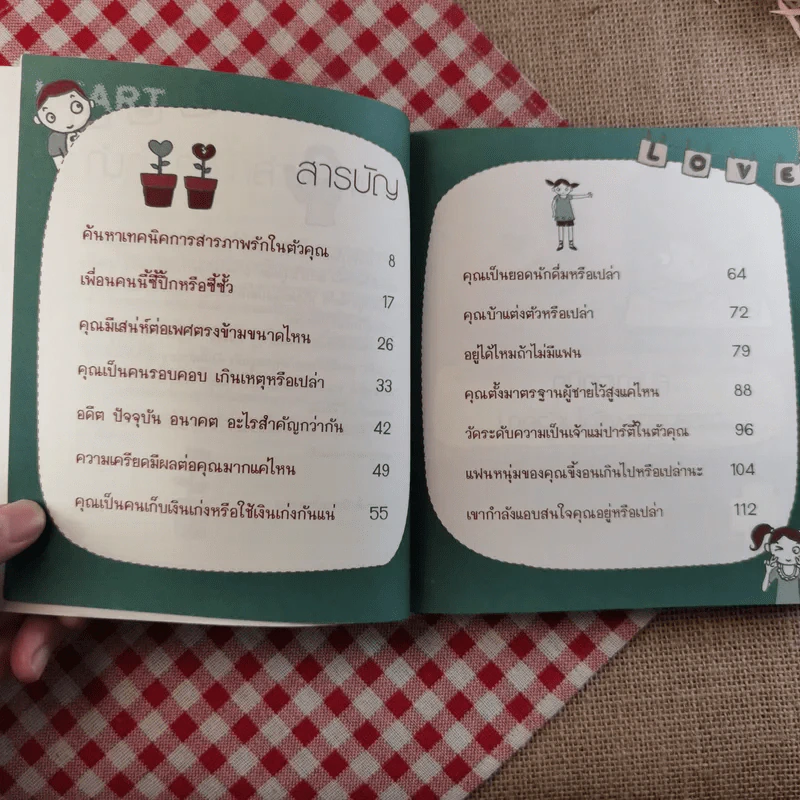 HEART
สารบัญ
ค้นหาเทคนิคการสารภาพรักในตัวคุณ 8
เพื่อนคนนี้ซี้ปึ้กหรือซี้ซั้ว 17
คุณมีเสน่ห์ต่อเพศตรงข้ามขนาดไหน 26
คุณเป็นคนรอบคอบ เกินเหตุหรือเปล่า 33
อดีต ปัจจุบัน อนาคต อะไรสำคัญกว่ากัน 42
ความเครียดมีผลต่อคุณมากแค่ไหน 49
คุณเป็นคนเก็บเงินเก่งหรือใช้เงินเก่งกันแน่ 55
LOVE
คุณเป็นยอดนักดื่มหรือเปล่า 64
คุณบ้าแต่งตัวหรือเปล่า 72
อยู่ได้ไหมถ้าไม่มีแฟน 79
คุณตั้งมาตรฐานผู้ชายไว้สูงแค่ไหน 88
วัดระดับความเป็นเจ้าแม่ปาร์ตี้ในตัวคุณ 96
แฟนหนุ่มของคุณขี้งอนเกินไปหรือเปล่านะ 104
เขากำลังแอบสนใจคุณอยู่หรือเปล่า 112